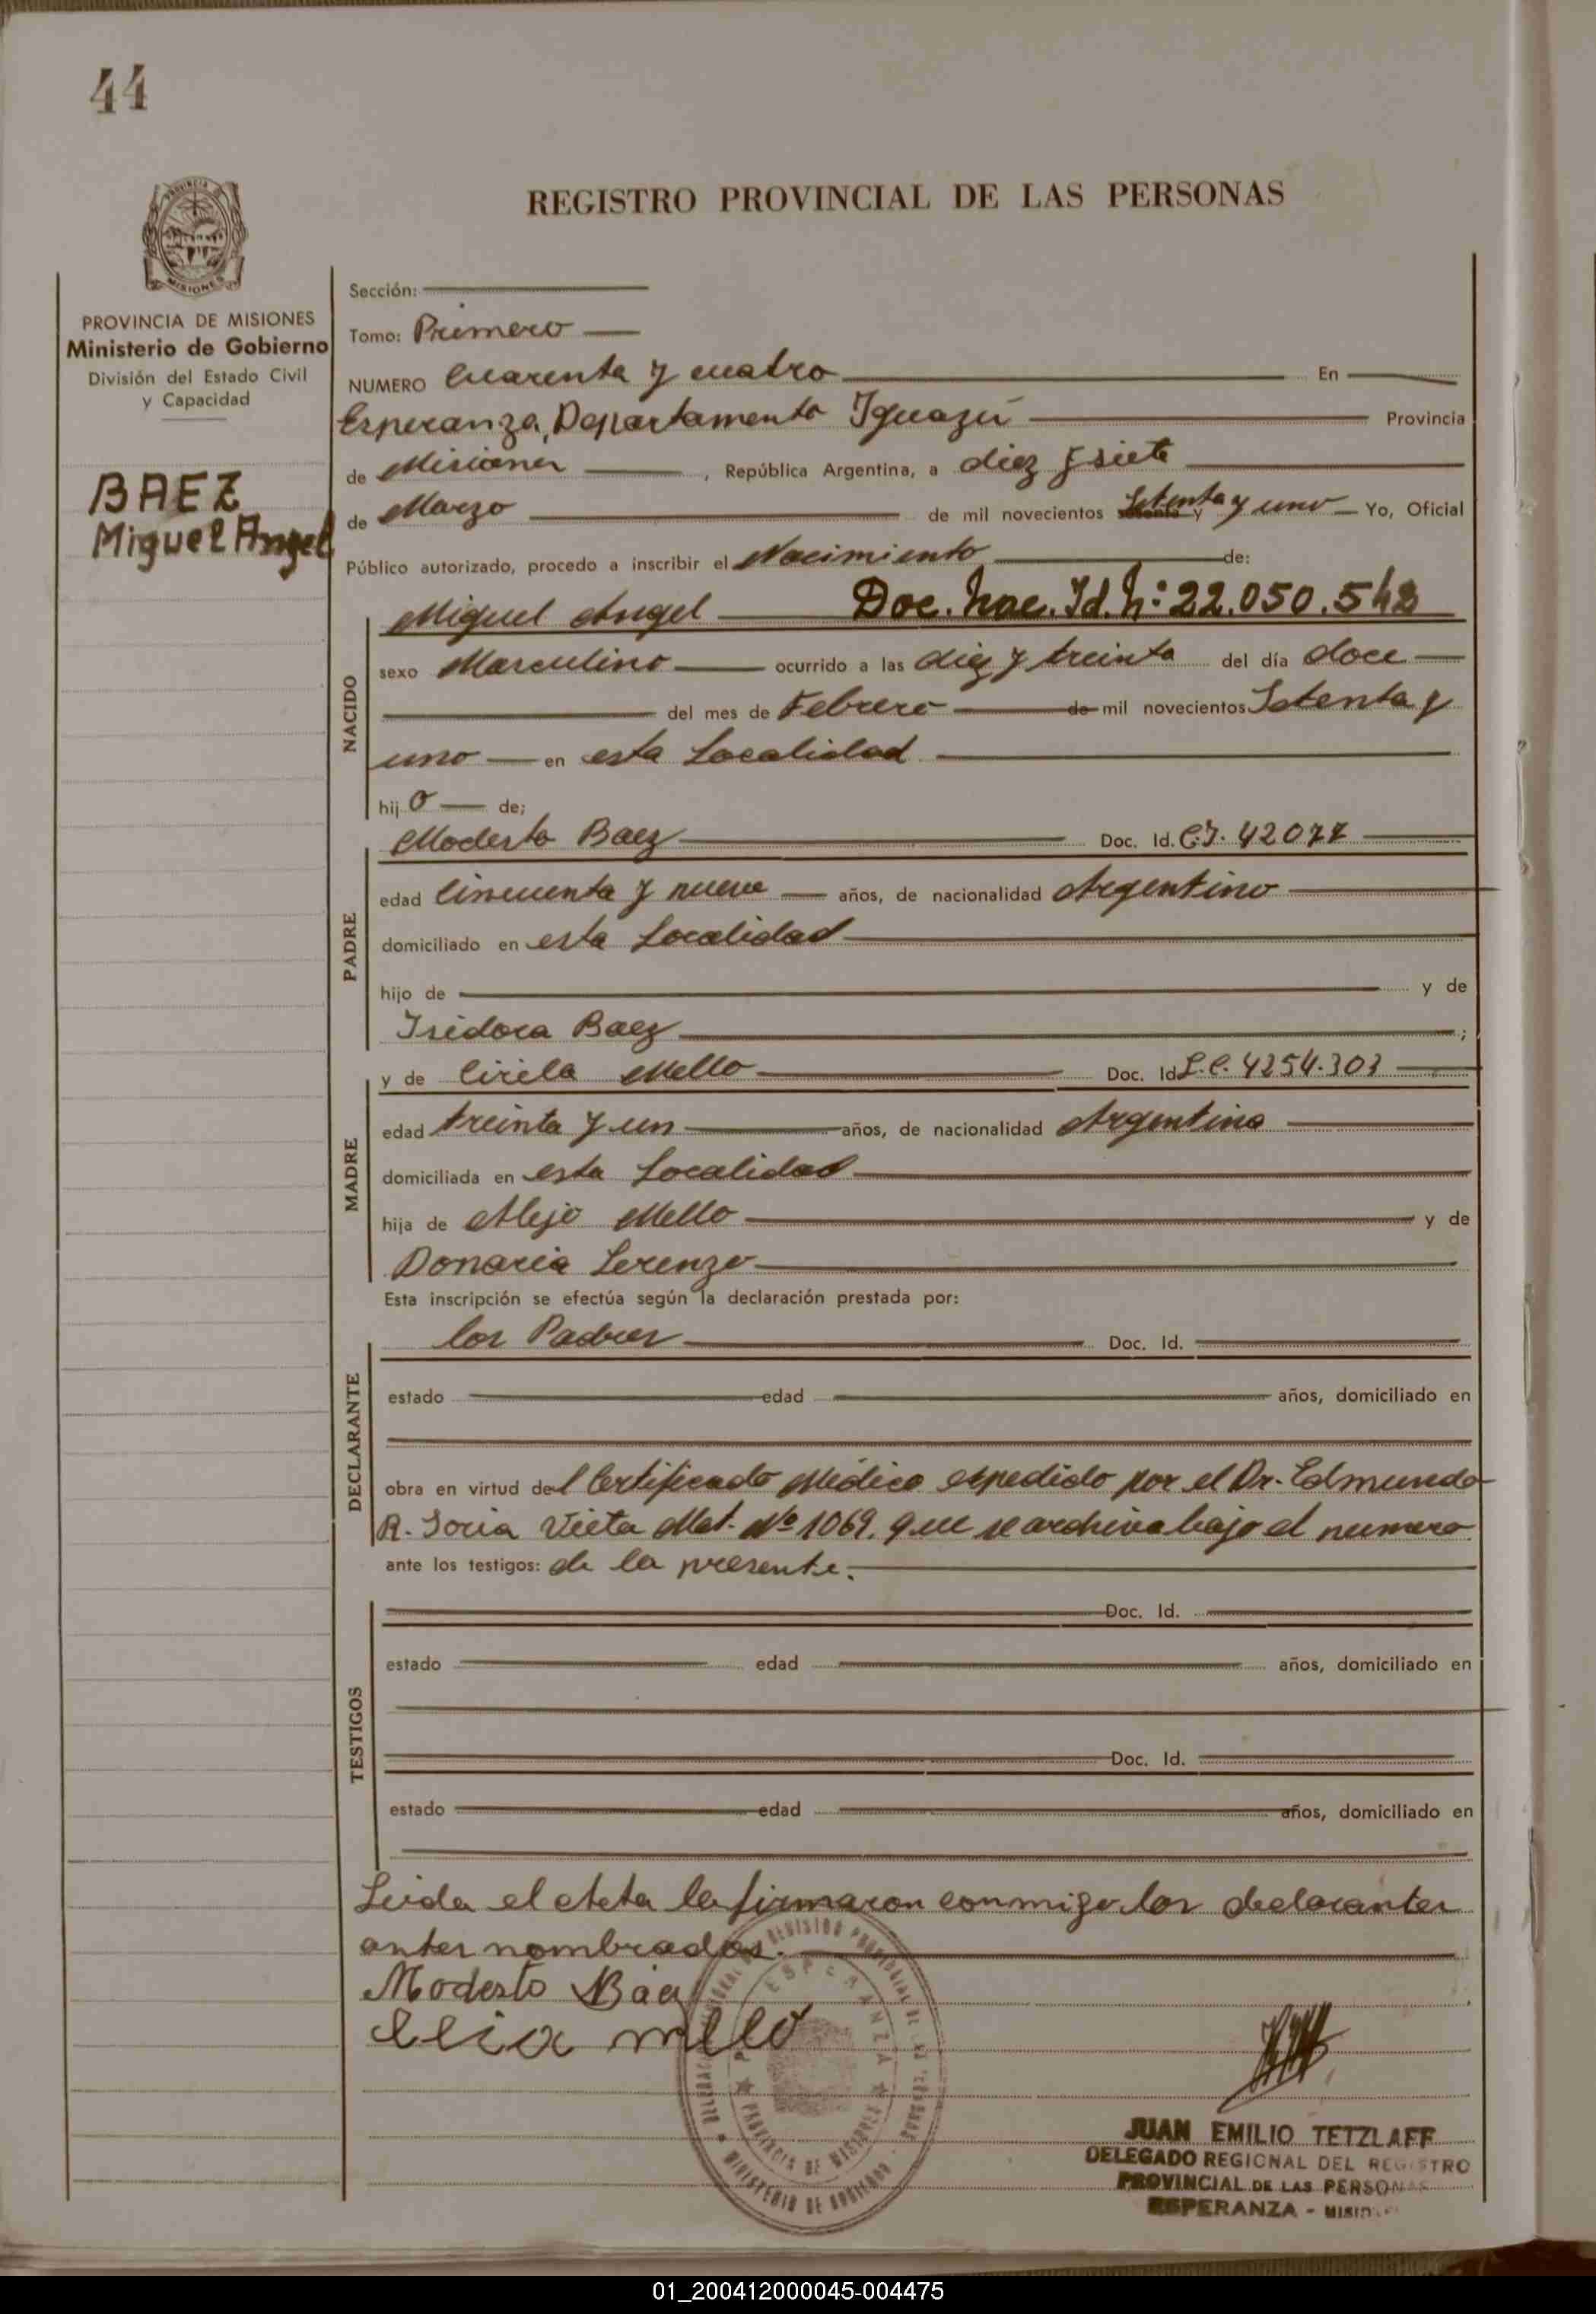 44
REGISTRO PROVINCIAL DE LAS PERSONAS
MISIONES
PROVINCIA DE MISIONES
Ministerio de Gobierno
División del Estado Civil
y Capacidad
BAEZ
Miguel Angel
Sección:
Tomo: Primero
NUMERO Cuarenta y cuatro En
Esperanza, Departamento Iguazú Provincia
de Misiones, República Argentina, a diez y siete
de Marzo de mil novecientos setenta y uno Yo, Oficial
Público autorizado, procedo a inscribir el Nacimiento de:
NACIDO
Miguel Angel Doc. Nac. Id. N: 22.050.542
sexo Masculino ocurrido a las diez y treinta del día doce
del mes de Febrero de mil novecientos Setenta y
uno en esta Localidad
hijo de;
PADRE
Modesto Baez Doc. Id. C.I. 42077
edad Cincuenta y nueve años, de nacionalidad Argentino
domiciliado en esta Localidad
hijo de y de
Isidora Baez ;
MADRE
y de Cirila Mello Doc. Id L.C. 4254.303
edad treinta y un años, de nacionalidad Argentina
domiciliada en esta Localidad
hija de Alejo Mello y de
Donaria Lorenzo
Esta inscripción se efectúa según la declaración prestada por:
DECLARANTE
los Padres Doc. Id.
estado edad años, domiciliado en
obra en virtud del Certificado Médico expedido por el Dr. Edmundo
R. Soria Vieta Mat. Nº 1069. que se archiva bajo el numero
ante los testigos: de la presente.
TESTIGOS
Doc. Id.
estado edad años, domiciliado en
Doc. Id.
estado edad años, domiciliado en
Leida el Acta la firmaron conmigo los declarantes
antes nombrados.
Modesto Baez
ESPERANZA
PROVINCIA DE MISIONES
MINISTERIO DE GOBIERNO
JUAN EMILIO TETZLAFF
DELEGADO REGIONAL DEL REGISTRO
PROVINCIAL DE LAS PERSONAS
ESPERANZA - MISIONES
01_200412000045-004475